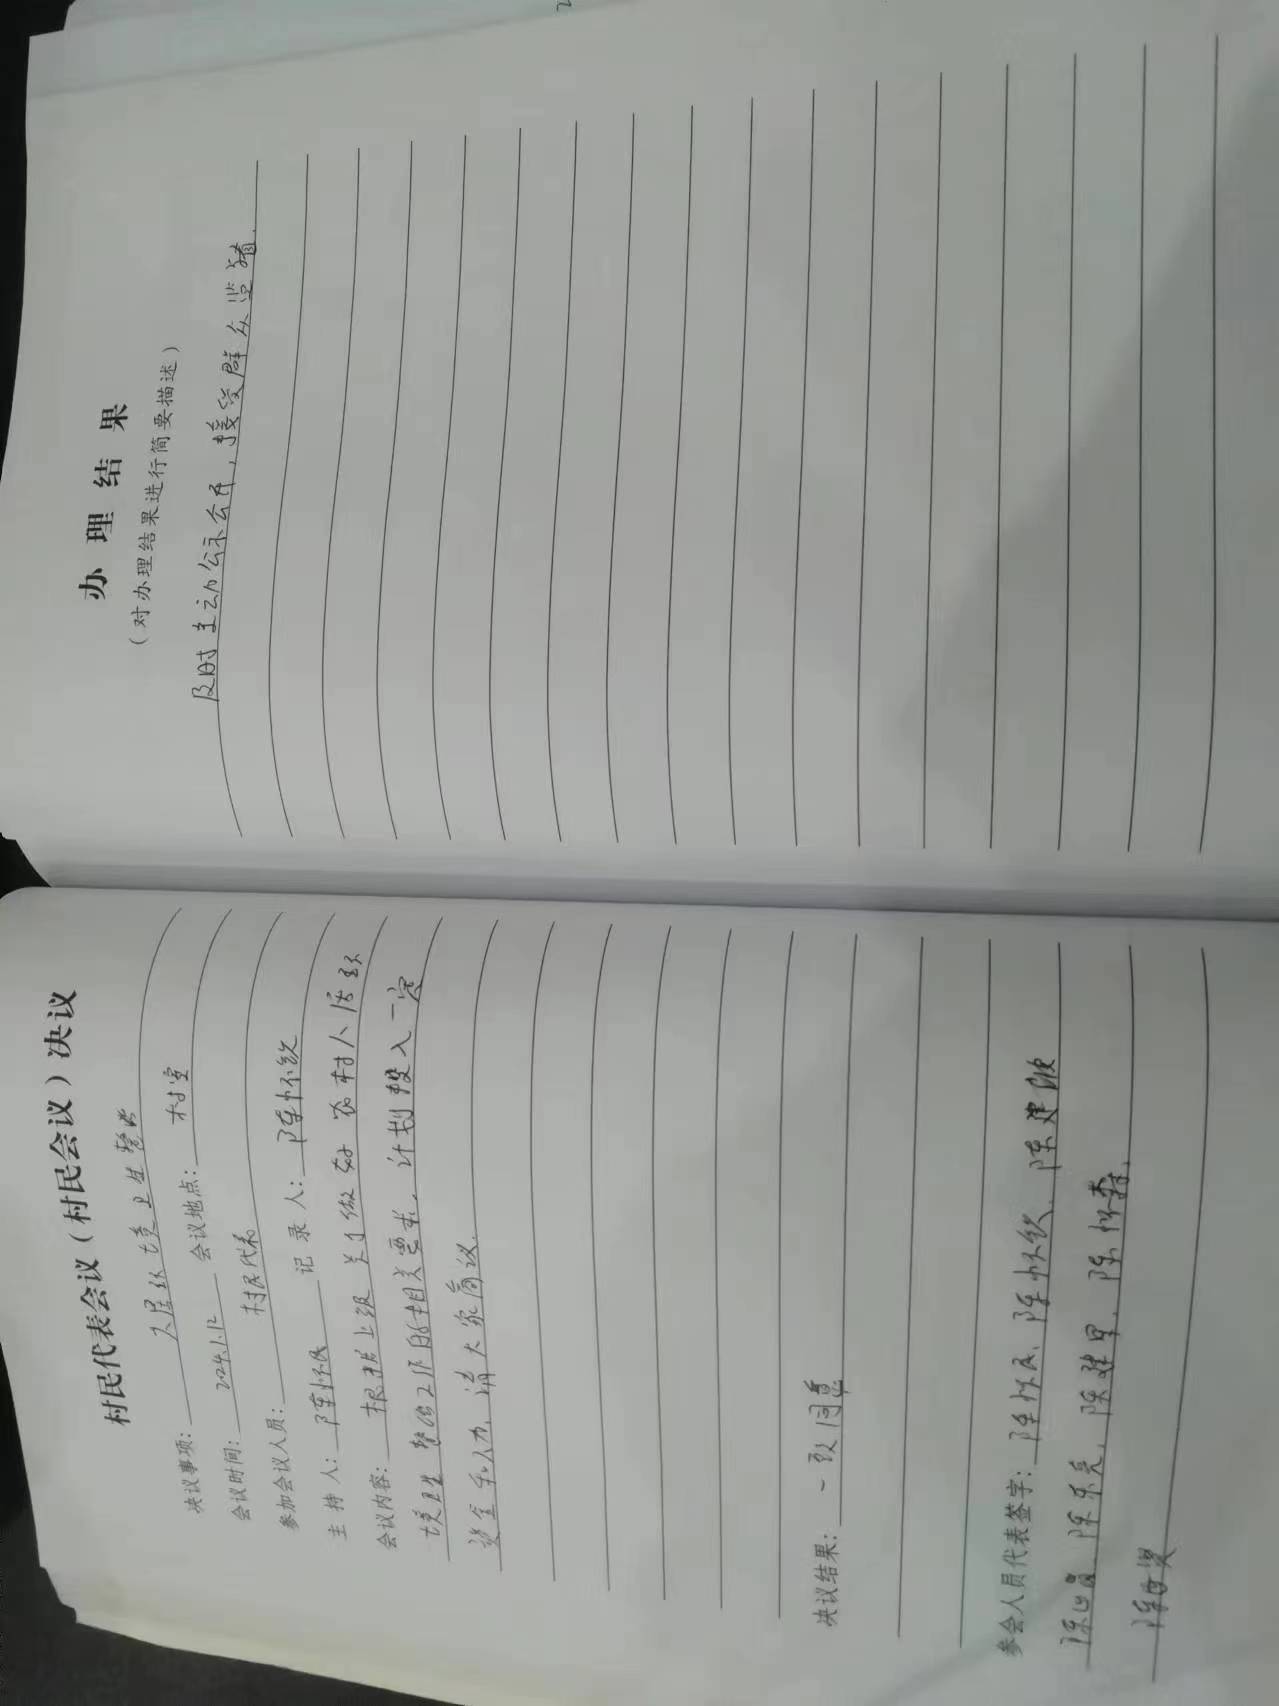 村民代表会议（村民会议）决议
决议事项：人居环境卫生整治
会议时间：2024.1.12 会议地点：村室
参加会议人员：村民代表
主 持 人：陈怀民 记 录 人：陈怀钦
会议内容：根据上级关于做好农村人居环
境卫生整治工作的相关要求，计划投入一定
资金和人力，请大家商议。
决议结果：一致同意
参会人员代表签字：陈怀民、陈怀钦、陈建
陈、陈东亮、陈建军、陈怀森、
陈
办 理 结 果
（对办理结果进行简要描述）
及时主动公示公开，接受群众监督.